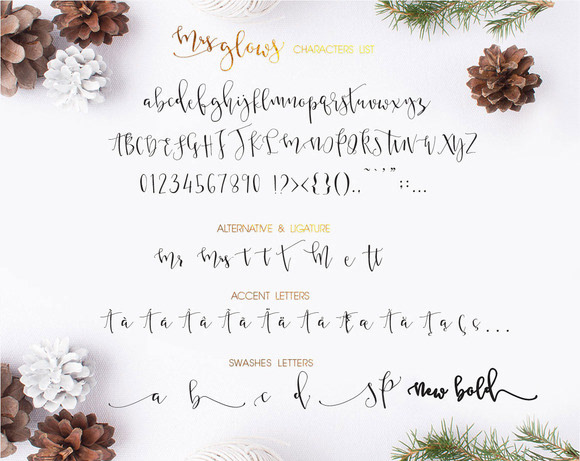 mrs glows CHARACTERS LIST
abcdefghijklmnopqrstuvwxyz
ABCDEFGHIJKLMNOPQRSTUVWXYZ
01234567890 !?><{}()..~`'"::...
ALTERNATIVE & LIGATURE
mr mrs t t t M e tt
ACCENT LETTERS
SWASHES LETTERS
a b c d s p new bold